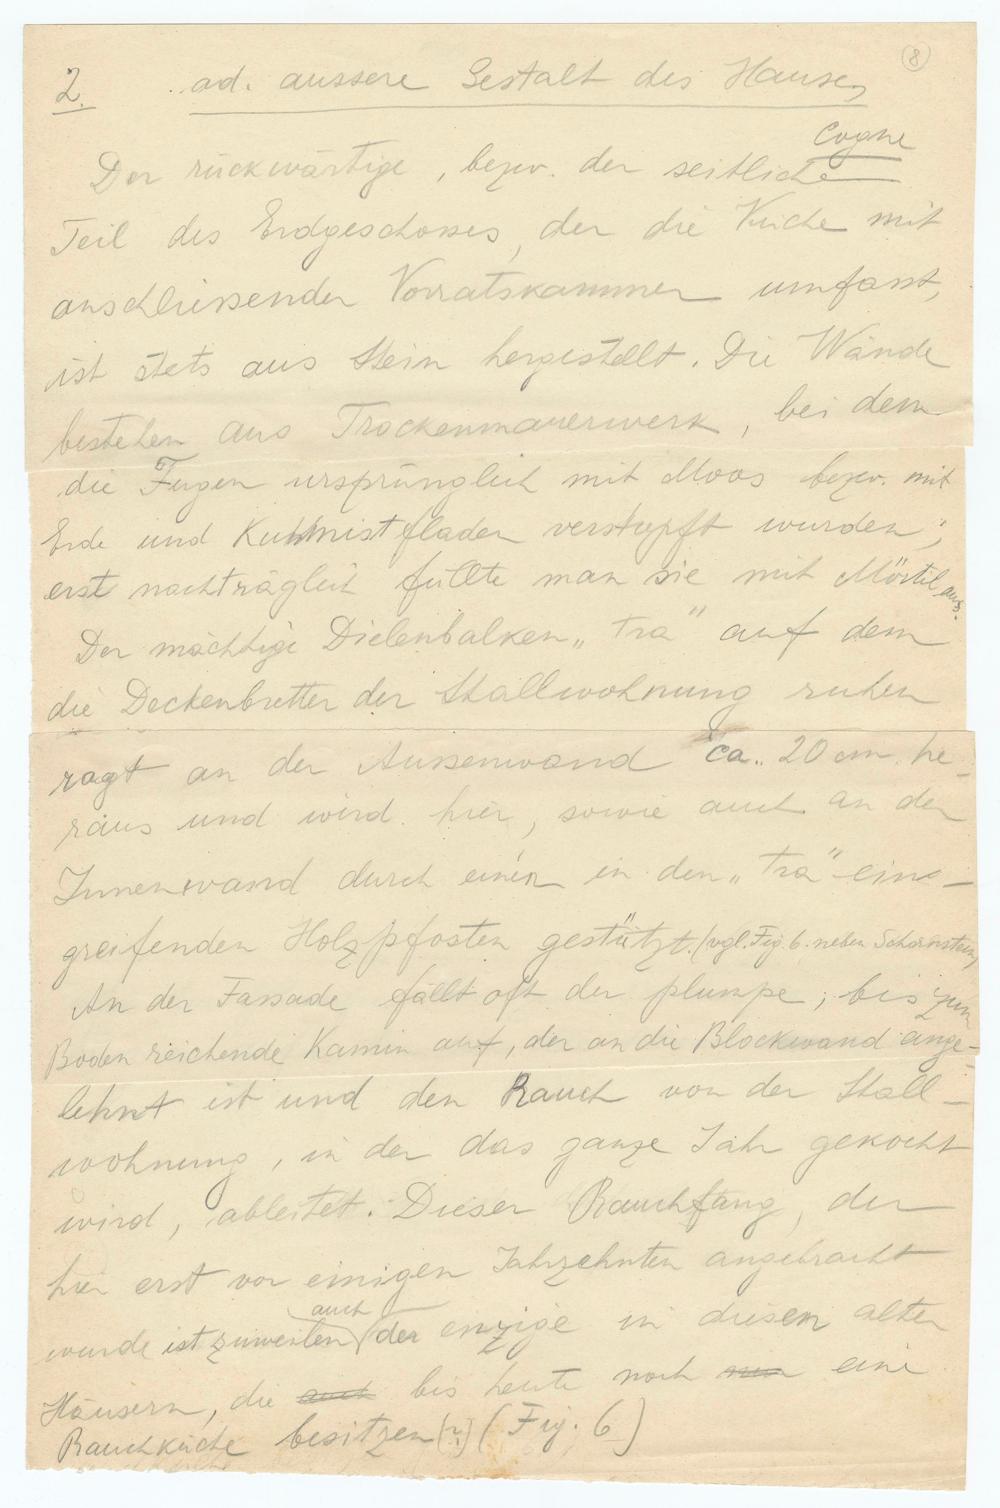 8
2. ad. aussere Gestalt des Hauses
Cogne
Der rückwärtige, bezw. der seitliche
Teil des Erdgeschosses, der die Küche mit
anschliessender Vorratskammer umfasst,
ist stets aus Stein hergestellt. Die Wände
bestehen aus Trockenmauerwerk, bei dem
die Fugen ursprünglich mit Moos bezw. mit
Erde und Kuhmistfladen verstopft wurden;
erst nachträglich füllte man sie mit Mörtel aus.
Der mächtige Dielenbalken „tra" auf dem
die Deckenbretter der Stallwohnung ruhen
ragt an der Aussenwand ca. 20 cm he-
raus und wird hier, sowie auch an der
Innenwand durch einen in den „tra" ein-
greifenden Holzpfosten gestützt. (vgl. Fig. 6. neben Schornstein)
An der Fassade fällt oft der plumpe, bis zum
Boden reichende Kamin auf, der an die Blockwand ange-
lehnt ist und den Rauch von der Stall-
wohnung, in der das ganze Jahr gekocht
wird, ableitet. Dieser Rauchfang, der
hier erst vor einigen Jahrzehnten angebracht
auch
wurde ist zuweilen der einzige in diesen alten
Häusern, die auch bis heute noch eine
Rauchküche besitzen (?) (Fig. 6)